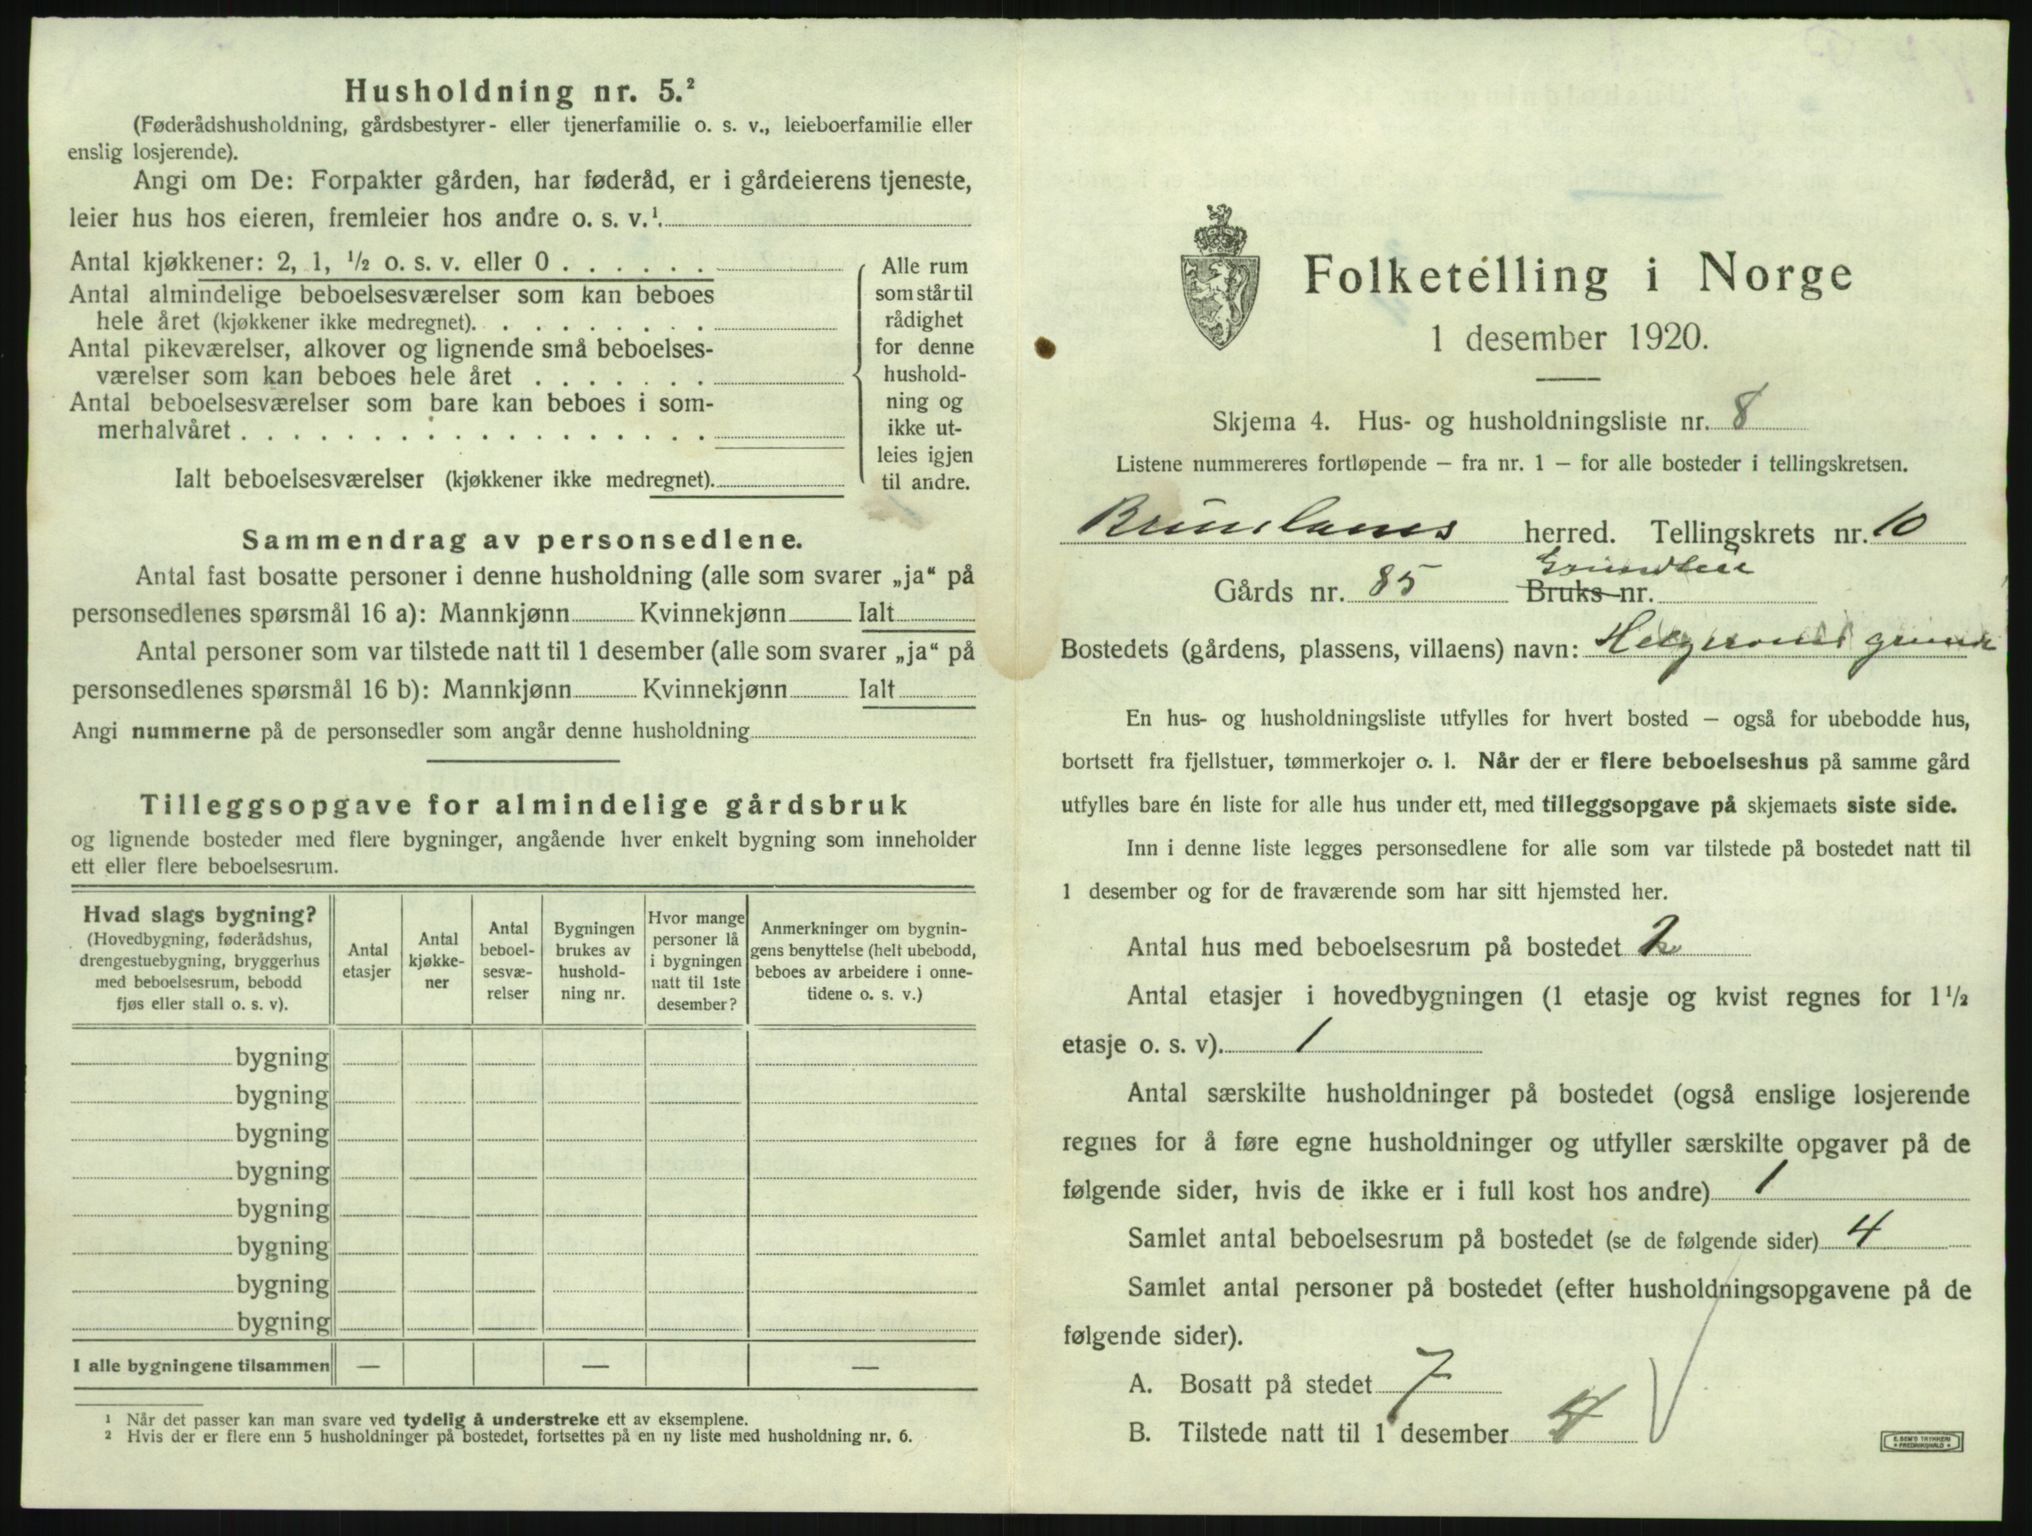 Husholdning nr. 5.²
(Føderådshusholdning, gårdsbestyrer- eller tjenerfamilie o. s. v., leieboerfamilie eller
enslig losjerende).
Angi om De: Forpakter gården, har føderåd, er i gårdeierens tjeneste,
leier hus hos eieren, fremleier hos andre o. s. v.¹.
Antal kjøkkener: 2, 1, ½ o. s. v. eller 0 . . . . . .
Antal almindelige beboelsesværelser som kan beboes
hele året (kjøkkener ikke medregnet). . . . . . . . .
Antal pikeværelser, alkover og lignende små beboelses-
værelser som kan beboes hele året . . . . . . .
Antal beboelsesværelser som bare kan beboes i som-
merhalvåret . . . . . . . . . . . . . . . . . .
Ialt beboelsesværelser (kjøkkener ikke medregnet).
Alle rum
som står til
rådighet
for denne
hushold-
ning og
ikke ut-
leies igjen
til andre.
Sammendrag av personsedlene.
Antal fast bosatte personer i denne husholdning (alle som svarer „ja“ på
personsedlenes spørsmål 16 a): Mannkjønn Kvinnekjønn Ialt
Antal personer som var tilstede natt til 1 desember (alle som svarer „ja“ på
personsedlenes spørsmål 16 b): Mannkjønn Kvinnekjønn Ialt
Angi nummerne på de personsedler som angår denne husholdning
Tilleggsopgave for almindelige gårdsbruk
og lignende bosteder med flere bygninger, angående hver enkelt bygning som inneholder
ett eller flere beboelsesrum.
Hvad slags bygning?
(Hovedbygning, føderådshus,
drengestuebygning, bryggerhus
med beboelsesrum, bebodd
fjøs eller stall o. s. v).
Antal
etasjer
Antal
kjøkke-
ner
Antal
beboel-
sesvæ-
relser
Bygningen
brukes av
hushold-
ning nr.
Hvor mange
personer lå
i bygningen
natt til 1ste
desember?
Anmerkninger om bygnin-
gens benyttelse (helt ubebodd,
beboes av arbeidere i onne-
tidene o. s. v.)
bygning
bygning
bygning
bygning
bygning
bygning
bygning
bygning
I alle bygningene tilsammen — — —
¹ Når det passer kan man svare ved tydelig å understreke ett av eksemplene.
² Hvis der er flere enn 5 husholdninger på bostedet, fortsettes på en ny liste med husholdning nr. 6.
Folketelling i Norge
1 desember 1920.
Skjema 4. Hus- og husholdningsliste nr. 8
Listene nummereres fortløpende – fra nr. 1 – for alle bosteder i tellingskretsen.
Brunlanes herred. Tellingskrets nr. 10
Gårds nr. 85 Bruks-nr.
Bostedets (gårdens, plassens, villaens) navn: Helgeroaes grund
En hus- og husholdningsliste utfylles for hvert bosted – også for ubebodde hus,
bortsett fra fjellstuer, tømmerkojer o. l. Når der er flere beboelseshus på samme gård
utfylles bare én liste for alle hus under ett, med tilleggsopgave på skjemaets siste side.
Inn i denne liste legges personsedlene for alle som var tilstede på bostedet natt til
1 desember og for de fraværende som har sitt hjemsted her.
Antal hus med beboelsesrum på bostedet
Antal etasjer i hovedbygningen (1 etasje og kvist regnes for 1½
etasje o. s. v). 1
Antal særskilte husholdninger på bostedet (også enslige losjerende
regnes for å føre egne husholdninger og utfyller særskilte opgaver på de
følgende sider, hvis de ikke er i full kost hos andre) 1
Samlet antal beboelsesrum på bostedet (se de følgende sider) 4
Samlet antal personer på bostedet (efter husholdningsopgavene på de
følgende sider).
A. Bosatt på stedet 7
B. Tilstede natt til 1 desember
E. SEM'S TRYKKERI
FREDRIKSHALD